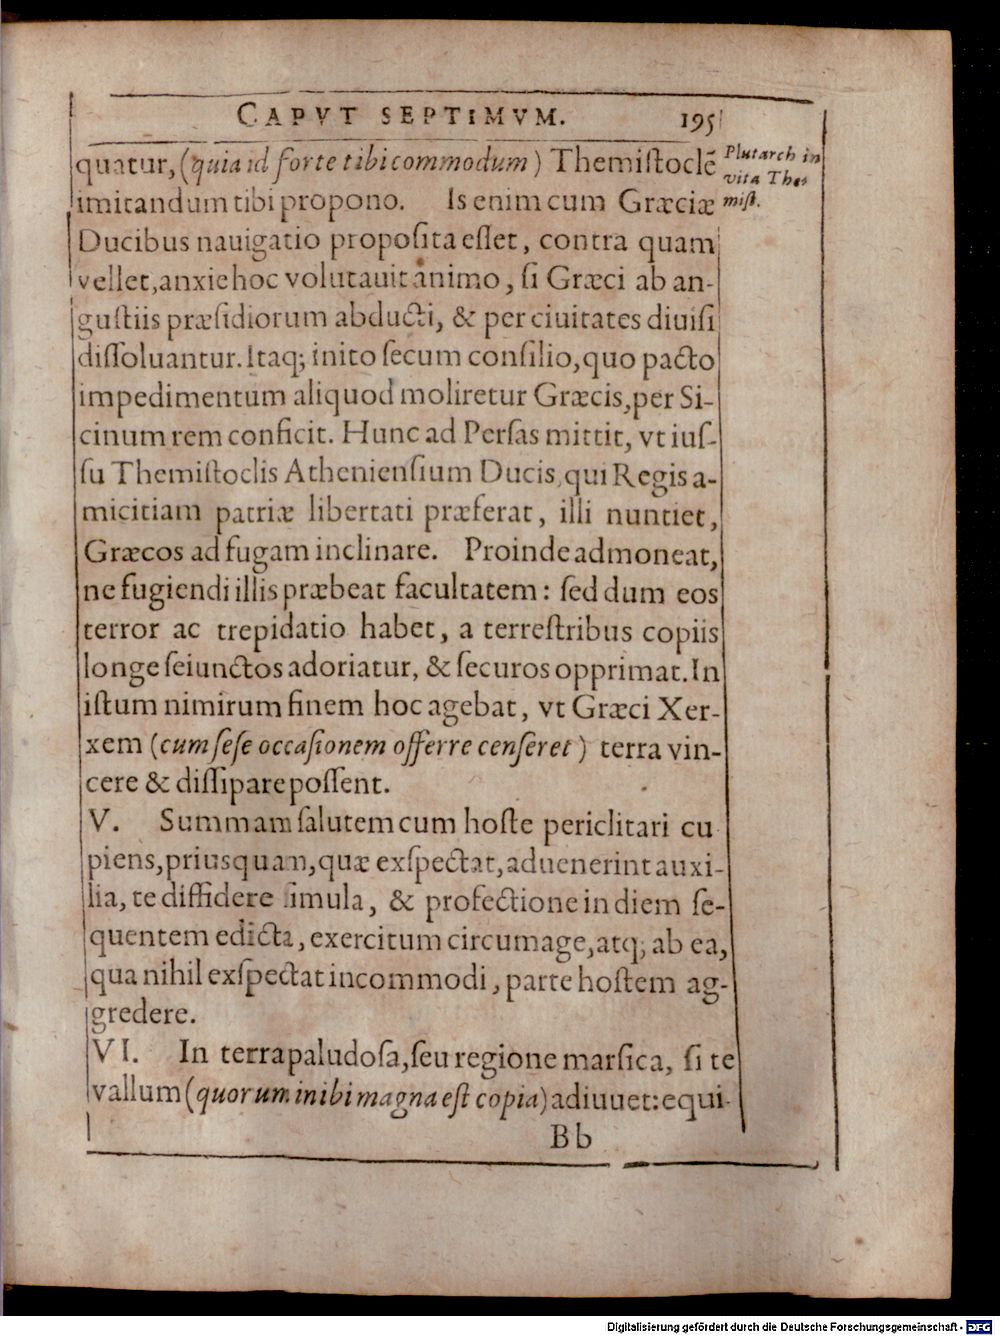 CAPVT SEPTIMVM. 195
quatur, (quia id forte tibi commodum) Themiſtoclẽ
imitandum tibi propono. Is enim cum Græciæ
Ducibus nauigatio propoſita eſſet, contra quam
vellet, anxie hoc volutauit animo, ſi Græci ab an-
guſtiis præſidiorum abducti, & per ciuitates diuiſi
diſſoluantur. Itaq; inito ſecum conſilio, quo pacto
impedimentum aliquod moliretur Græcis, per Si-
cinum rem conficit. Hunc ad Perſas mittit, vt iuſ-
ſu Themiſtoclis Athenienſium Ducis, qui Regis a-
micitiam patriæ libertati præferat, illi nuntiet,
Græcos ad fugam inclinare. Proinde admoneat,
ne fugiendi illis præbeat facultatem: ſed dum eos
terror ac trepidatio habet, a terreſtribus copiis
longe ſeiunctos adoriatur, & ſecuros opprimat. In
iſtum nimirum finem hoc agebat, vt Græci Xer-
xem (cum ſeſe occaſionem offerre cenſeret) terra vin-
cere & diſſipare poſſent.
V. Summam ſalutem cum hoſte periclitari cu-
piens, priusquam, quæ exſpectat, aduenerint auxi-
lia, te diffidere ſimula, & profectione in diem ſe-
quentem edicta, exercitum circumage, atq; ab ea,
qua nihil exſpectat incommodi, parte hoſtem ag-
gredere.
VI. In terra paludoſa, ſeu regione marſica, ſi te
vallum (quorum inibi magna eſt copia) adiuuet: equi-
Bb
Plutarch in
vita The-
miſt.
Digitalisierung gefördert durch die Deutsche Forschungsgemeinschaft - DFG